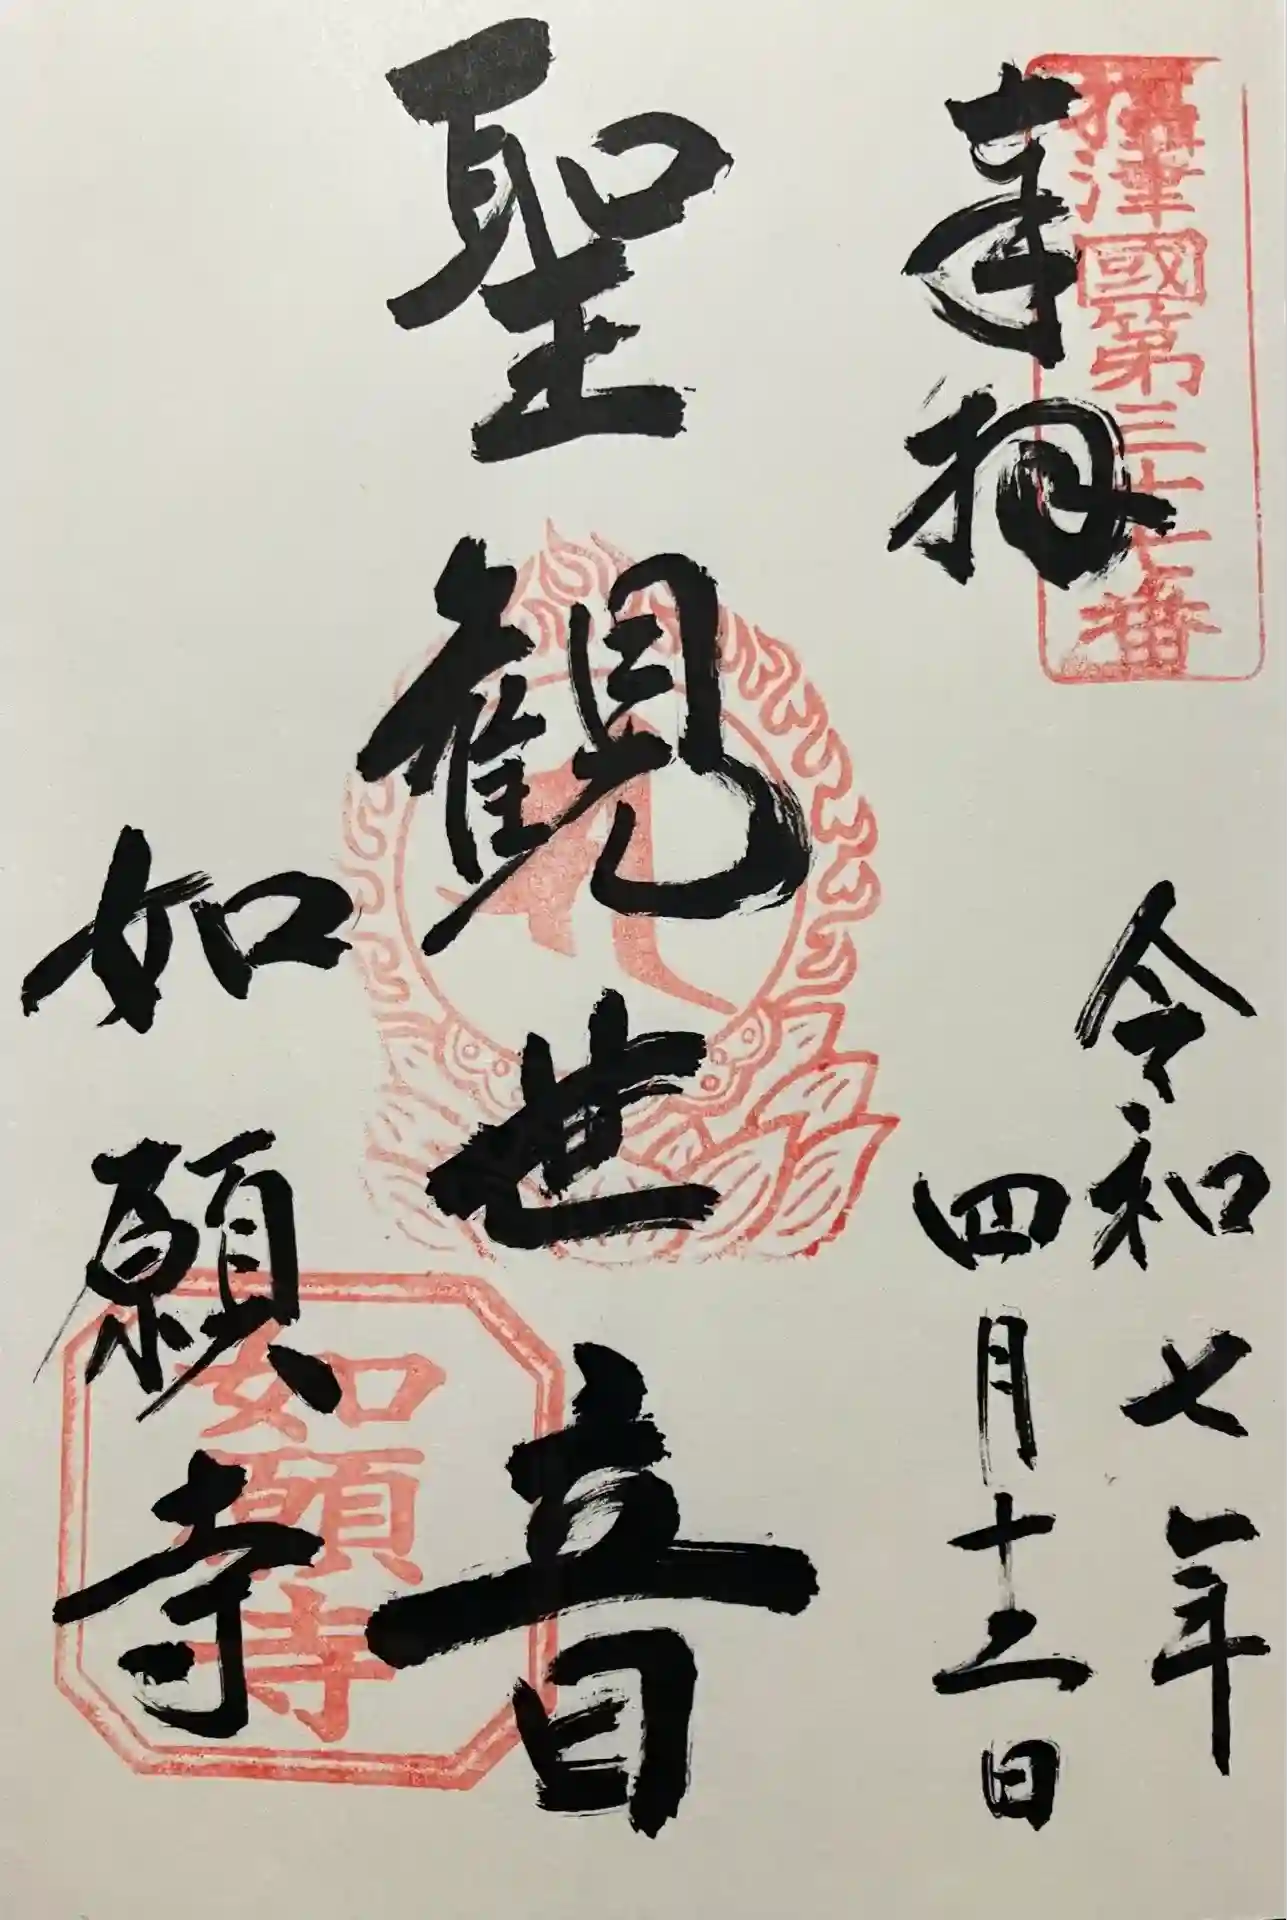 攝津國第三十七番
奉拝
令和七年
四月十二日
聖観世音
如願寺
如願寺